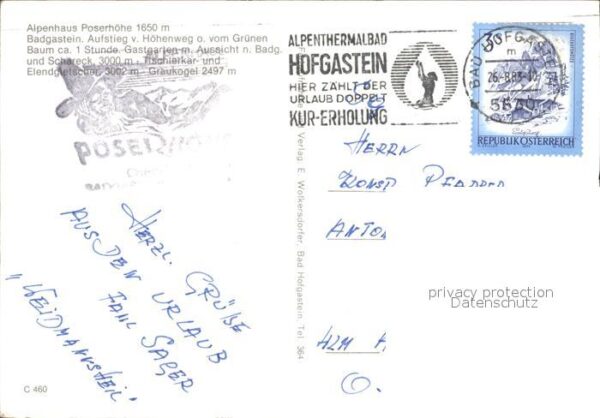 Alpenhaus Poserhöhe 1650 m
Badgastein. Aufstieg v. Höhenweg o. vom Grünen
Baum ca. 1 Stunde. Gastgarten m. Aussicht n. Badg.
und Schareck, 3000 m - Tischlerkar- und
Elendgletscher, 3002 m - Graukogel 2497 m
ALPENTHERMALBAD
HOFGASTEIN
HIER ZÄHLT DER
URLAUB DOPPELT
KUR-ERHOLUNG
BAD HOFGASTEIN
5630
REPUBLIK ÖSTERREICH
HERRN
ANTON
HERZL. GRÜßE
AUS DEM URLAUB
FAM. SAGER
"WEIDMANNSHEIL"
Verlag E. Wolkersdorfer, Bad Hofgastein, Tel. 364
privacy protection
Datenschutz
C 460